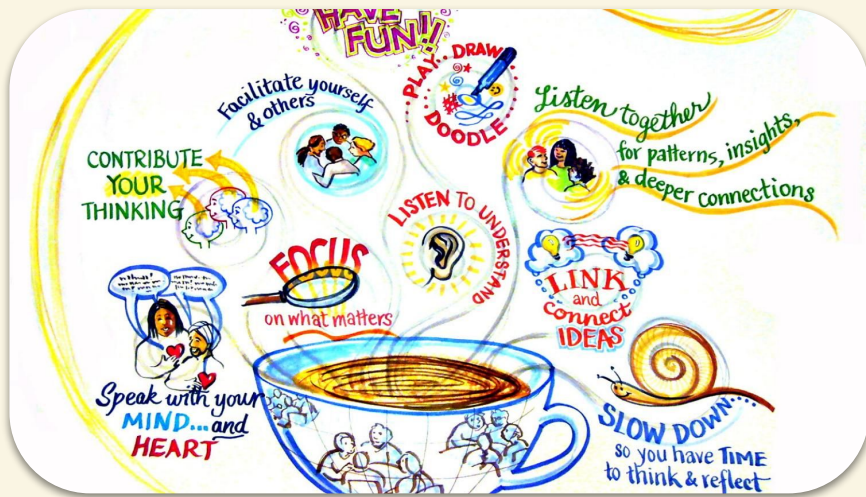 HAVE
FUN!!
PLAY.. DRAW
DOODLE
Facilitate yourself
& others
Listen together
for patterns, insights,
& deeper connections
CONTRIBUTE
YOUR
THINKING
LISTEN TO UNDERSTAND
FOCUS
on what matters
LINK
and
connect
IDEAS
Speak with your
MIND...and
HEART
SLOW DOWN....
so you have TIME
to think & reflect